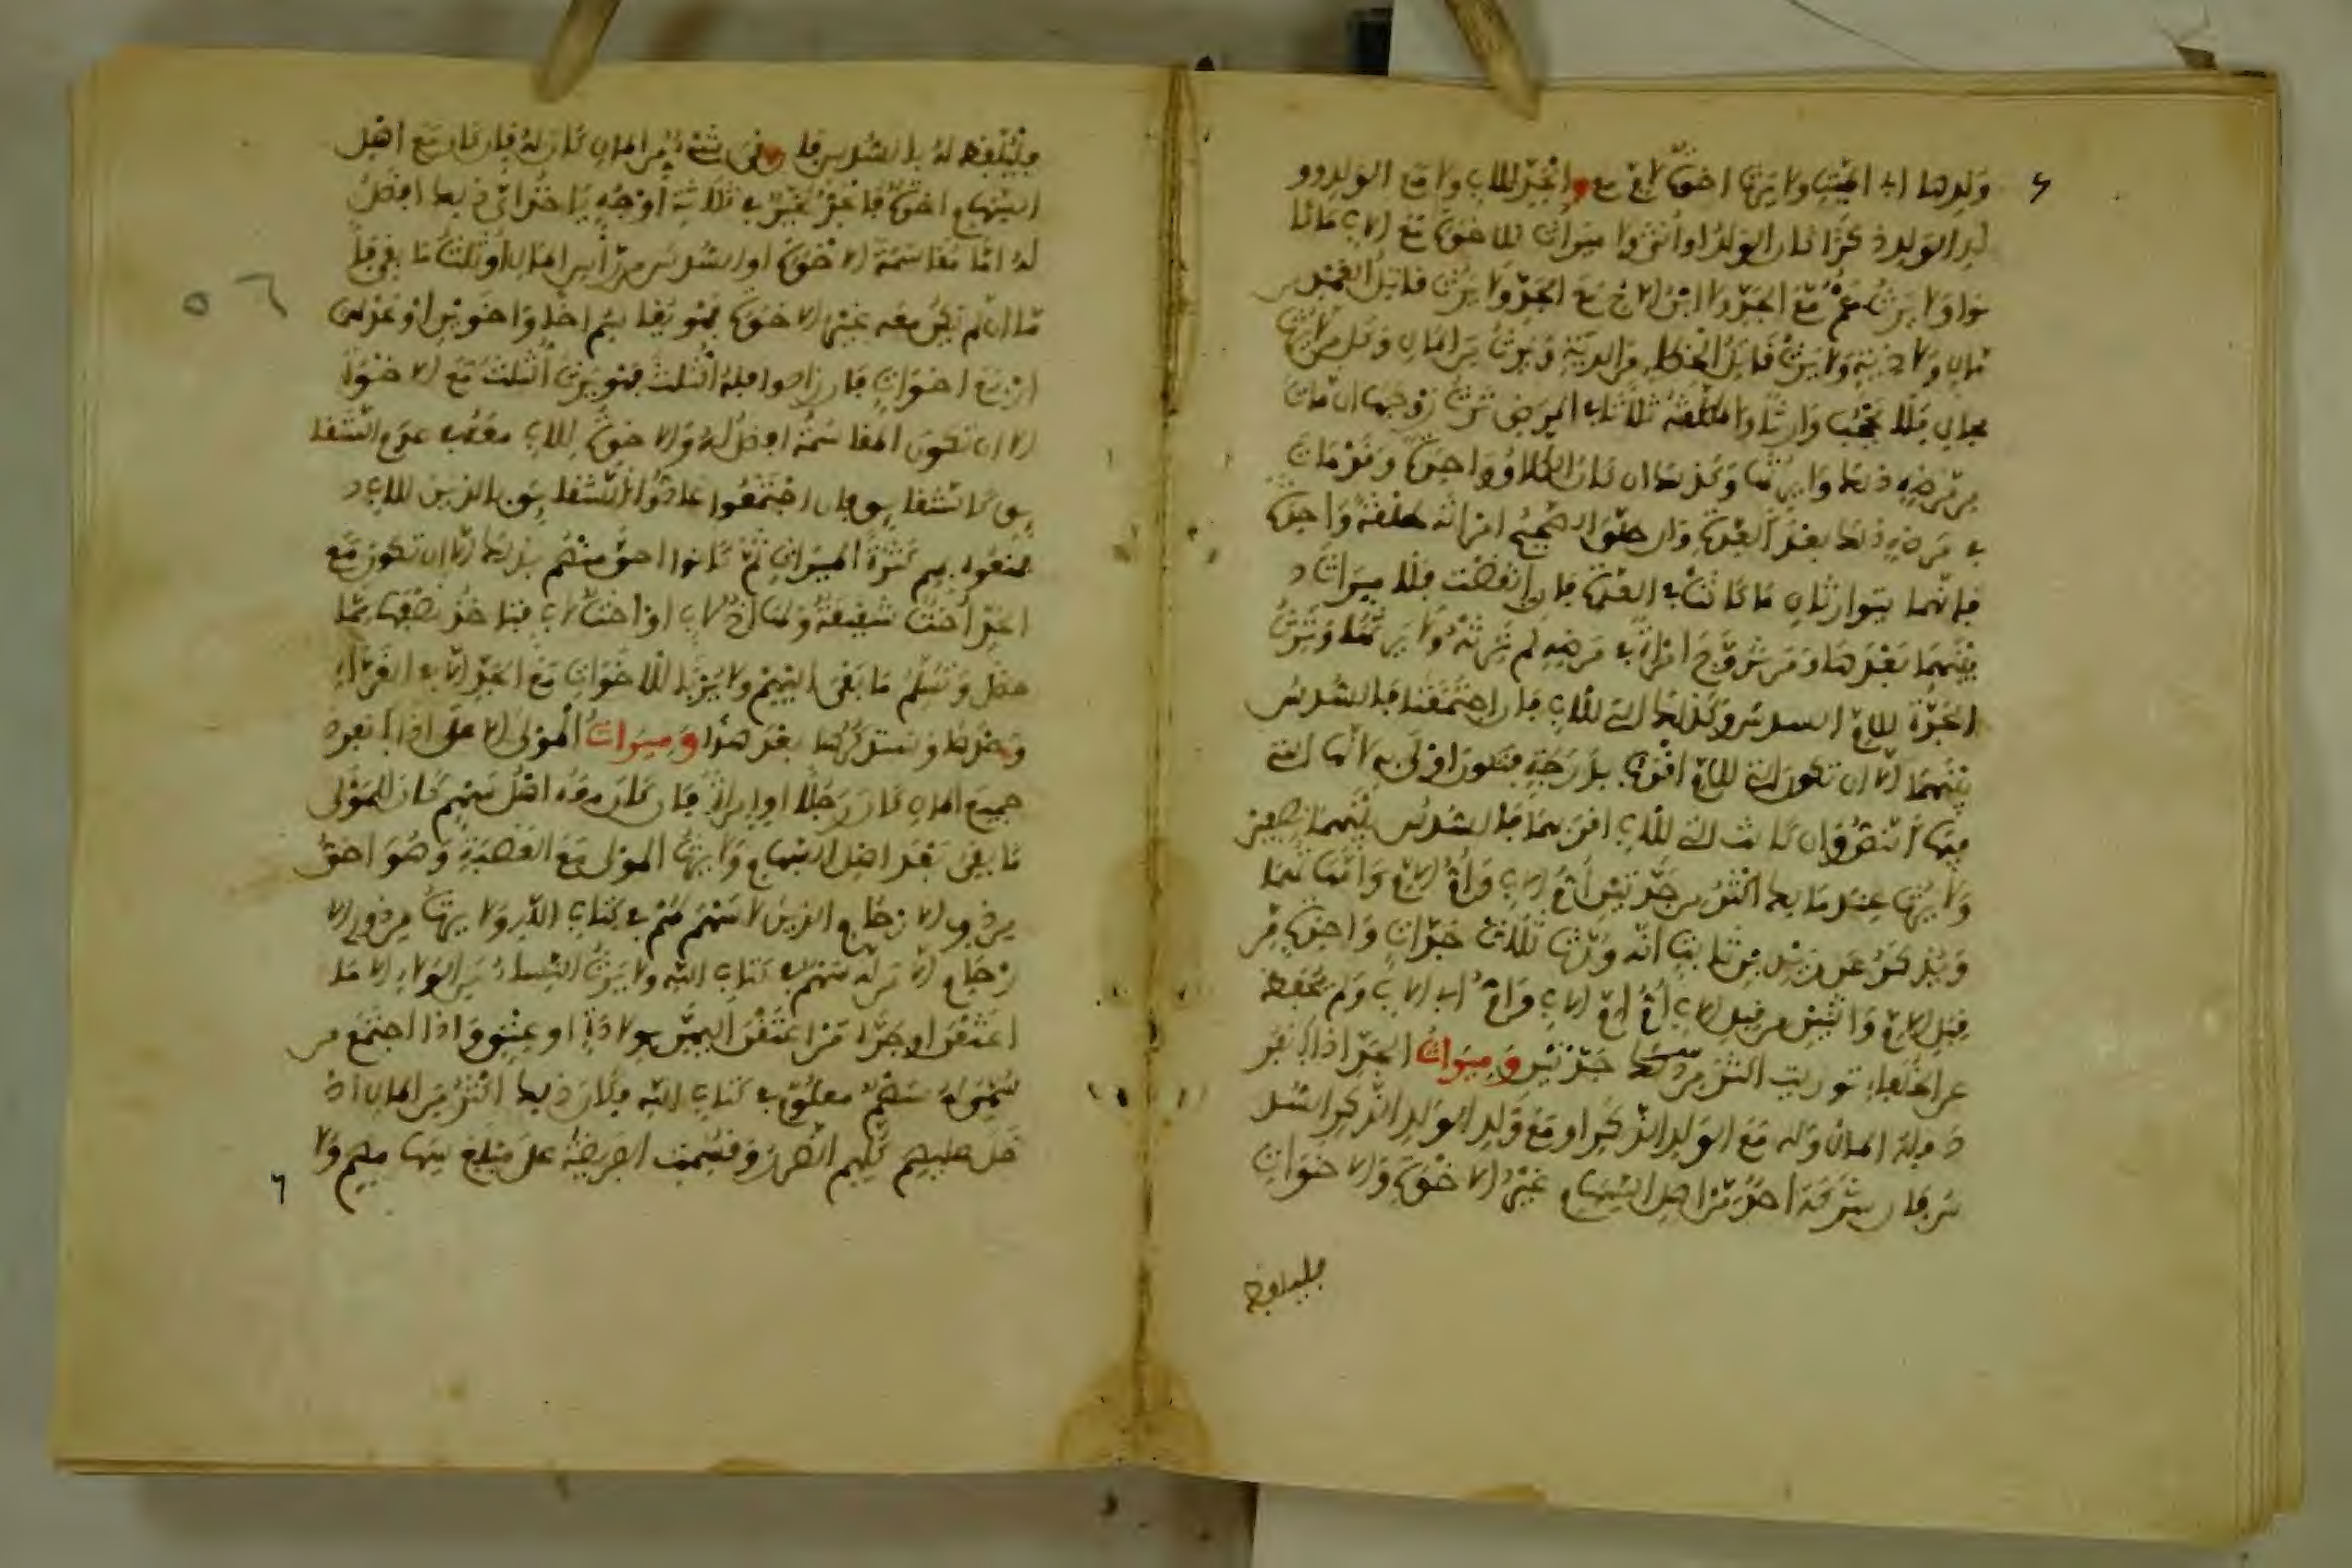 ولدها اب الميت ولا يرث اخوة لام مع الجد للاب ولا مع الولد وو
لد الولد ذكرا كان الولد او انثى ولا ميراث للاخوة مع الاب ما كا
نوا ولا يرث عم مع الجد ولا ابن الاخ مع الجد ولا يرث قاتل العمد من
مال ولا دية ولا يرث قاتل الخطإ من الدية ويرث من المال وكل من لا يرث
بحال فلا يحجب وارثا والمطلقة ثلاثا في المرض ترث زوجها ان مات
من مرضه ذلك ولا يرثها وكذلك ان كان الطلاق واحدة وقد مات
في مرضه ذلك بعد العدة وان طلق الصحيح امراته طلقة واحدة
فانهما يتوارثان ما كانت في العدة فان انقضت فلا ميراث
بينهما بعدها ومن تزوج امراة في مرضه لم ترثه ولا يرثها وترث
الجدة للام السدس وكذلك التي للاب فان اجتمعتا فالسدس
بينهما الا ان تكون التي للام اقرب بدرجة فتكون اولى به لانها التي
فيها النص وان كانت التي للاب اقربهما فالسدس بينهما نصفين
ولا يرث عند مالك اكثر من جدتين ام الاب وام الام وامهاتهما
ويذكر عن زيد بن ثابت انه ورث ثلاث جدات واحدة من
قبل الام واثنتين من قبل الاب ام ام الاب وام اب الاب ولم يحفظ
عن الخلفاء توريث اكثر من جدتين وميراث الجد اذا انفر
د فله المال وله مع الولد الذكر او مع ولد الولد الذكر السد
س فان شركه احد من اهل السهام غير الاخوة والاخوات
فليقض له بالسدس فان بقي شيء من المال كان له فان كان مع اهل
السهام اخوة فالجد مخير في ثلاثة اوجه ياخذ اي ذلك افضل
له اما مقاسمة الاخوة او السدس من راس المال او ثلث ما بقي فا
ما ان لم يكن معه غير الاخوة فهو يقاسم اخا واخوين او عدلهما
اربع اخوات فان زادوا فله الثلث فهو يرث الثلث مع الاخوة
الا ان تكون المقاسمة افضل له والاخوة للاب معه في عدم الشقا
يق كالشقايق فان اجتمعوا عاده الشقايق بالذين للاب
فمنعوه بهم كثرة الميراث ثم كانوا احق منهم بذلك الا ان تكون مع
الجد اخت شقيقة ولها اخ لاب او اخت لاب فتاخذ نصفها مما
حصل وتسلم ما بقي اليهم ولا يربا للاخوات مع الجد الا في الغراء
وحدها وسنذكرها بعد هذا وميراث المولى الاعلى اذا انفرد
جميع المال كان رجلا او امراة فان كان معه اهل سهم كان للمولى
ما بقي بعد اهل السهام ولا يرث المولى مع العصبة وهو احق
من ذوي الارحام الذين لا سهم لهم في كتاب الله ولا يرث من ذوي الا
رحام الا من له سهم في كتاب الله ولا يرث النساء من الولاء الا ما
اعتقن او جره من اعتقن اليهن بولادة او عتق واذا اجتمع من
له سهم معلوم في كتاب الله فكان ذلك اكثر من المال اد
خل عليهم كلهم الضرر وقسمت الفريضة على مبلغ سهامهم ولا